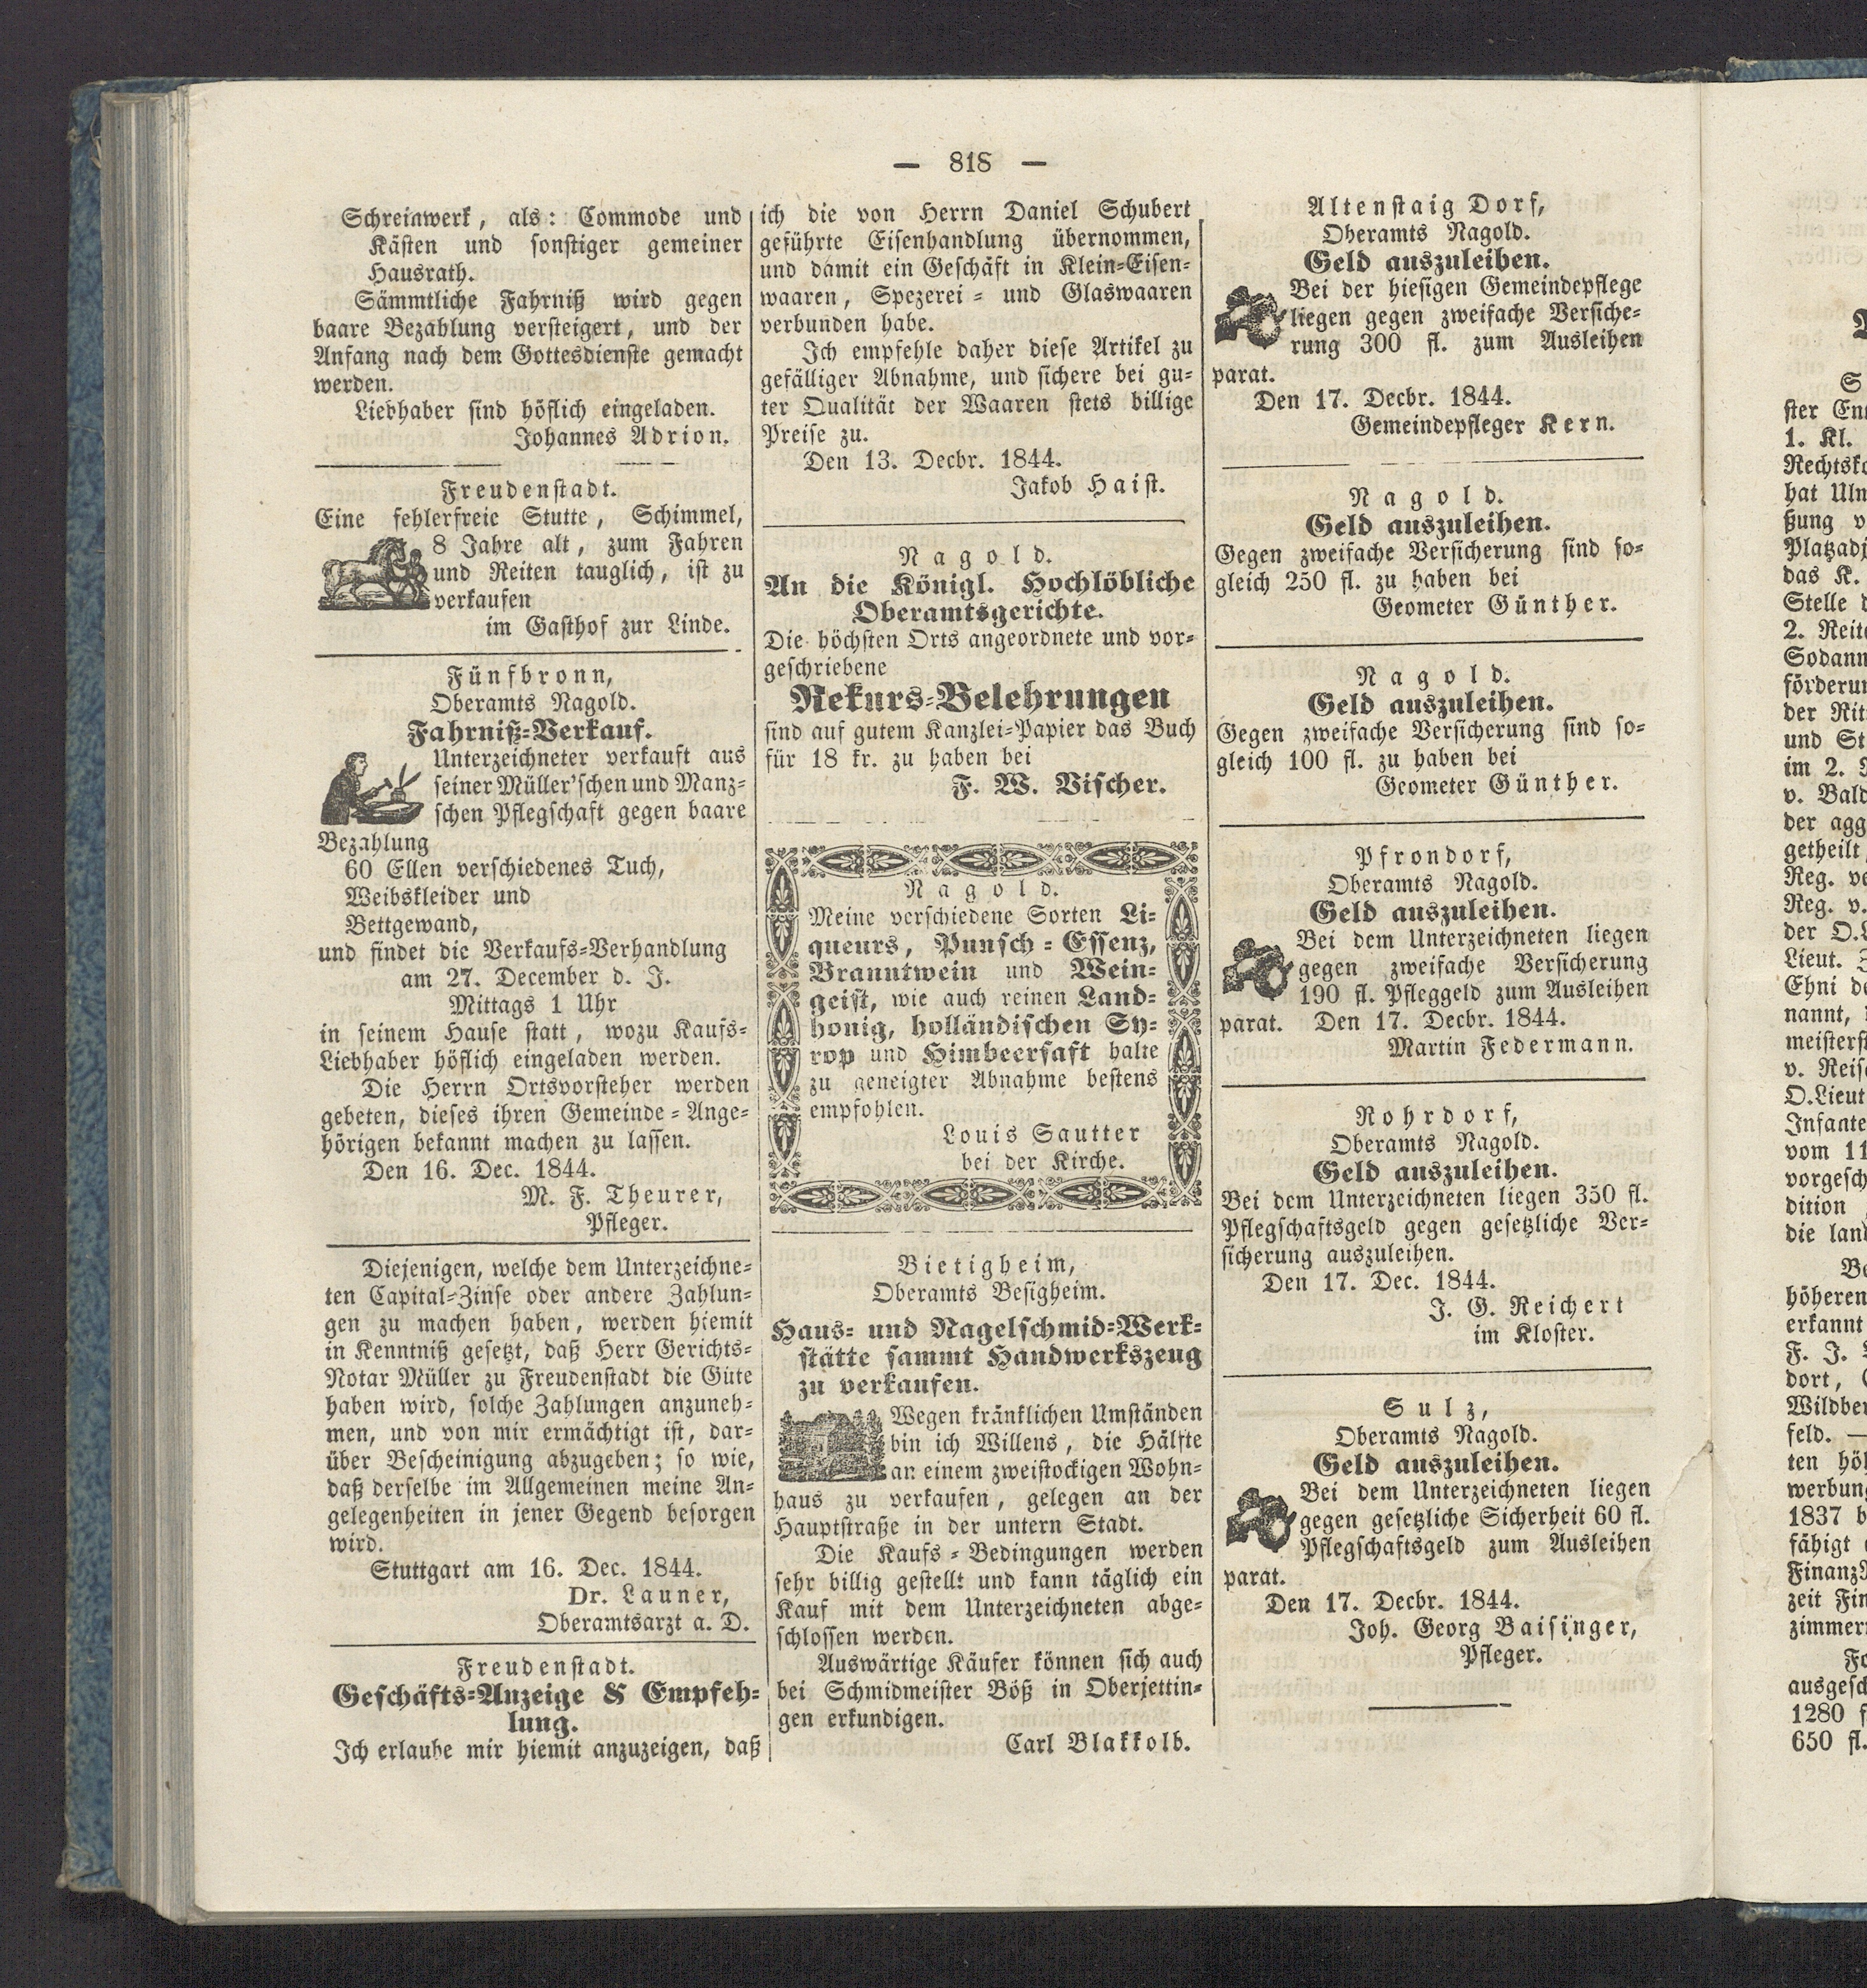 — 818 —
Schreinwerk, als: Commode und
Kästen und sonstiger gemeiner
Hausrath.
Sämmtliche Fahrniß wird gegen
baare Bezahlung versteigert, und der
Anfang nach dem Gottesdienste gemacht
werden.
Liebhaber sind höflich eingeladen.
Johannes Adrion.
Freudenstadt.
Eine fehlerfreie Stutte, Schimmel,
8 Jahre alt, zum Fahren
und Reiten tauglich, ist zu
verkaufen
im Gasthof zur Linde.
Fünfbronn,
Oberamts Nagold.
Fahrniß-Verkauf.
Unterzeichneter verkauft aus
seiner Müller'schen und Manz-
schen Pflegschaft gegen baare
Bezahlung
60 Ellen verschiedenes Tuch,
Weibskleider und
Bettgewand,
und findet die Verkaufs-Verhandlung
am 27. December d. J.
Mittags 1 Uhr
in seinem Hause statt, wozu Kaufs-
Liebhaber höflich eingeladen werden.
Die Herrn Ortsvorsteher werden
gebeten, dieses ihren Gemeinde-Ange-
hörigen bekannt machen zu lassen.
Den 16. Dec. 1844.
M. F. Theurer,
Pfleger.
Diejenigen, welche dem Unterzeichne-
ten Capital-Zinse oder andere Zahlun-
gen zu machen haben, werden hiemit
in Kenntniß gesetzt, daß Herr Gerichts-
Notar Müller zu Freudenstadt die Güte
haben wird, solche Zahlungen anzuneh-
men, und von mir ermächtigt ist, dar-
über Bescheinigung abzugeben; so wie,
daß derselbe im Allgemeinen meine An-
gelegenheiten in jener Gegend besorgen
wird.
Stuttgart am 16. Dec. 1844.
Dr. Launer,
Oberamtsarzt a. D.
Freudenstadt.
Geschäfts-Anzeige & Empfeh-
lung.
Ich erlaube mir hiemit anzuzeigen, daß
ich die von Herrn Daniel Schubert
geführte Eisenhandlung übernommen,
und damit ein Geschäft in Klein-Eisen-
waaren, Spezerei- und Glaswaaren
verbunden habe.
Ich empfehle daher diese Artikel zu
gefälliger Abnahme, und sichere bei gu-
ter Qualität der Waaren stets billige
Preise zu.
Den 13. Decbr. 1844.
Jakob Haist.
Nagold.
An die Königl. Hochlöbliche
Oberamtsgerichte.
Die höchsten Orts angeordnete und vor-
geschriebene
Rekurs-Belehrungen
sind auf gutem Kanzlei-Papier das Buch
für 18 kr. zu haben bei
F. W. Vischer.
Nagold.
Meine verschiedene Sorten Li-
queurs, Punsch-Essenz,
Branntwein und Wein-
geist, wie auch reinen Land-
honig, holländischen Sy-
rop und Himbeersaft halte
zu geneigter Abnahme bestens
empfohlen.
Louis Sautter
bei der Kirche.
Bietigheim,
Oberamts Besigheim.
Haus- und Nagelschmid-Werk-
stätte sammt Handwerkszeug
zu verkaufen.
Wegen kränklichen Umständen
bin ich Willens, die Hälfte
an einem zweistockigen Wohn-
haus zu verkaufen, gelegen an der
Hauptstraße in der untern Stadt.
Die Kaufs-Bedingungen werden
sehr billig gestellt und kann täglich ein
Kauf mit dem Unterzeichneten abge-
schlossen werden.
Auswärtige Käufer können sich auch
bei Schmidmeister Böß in Oberjettin-
gen erkundigen.
Carl Blakkolb.
Altenstaig Dorf,
Oberamts Nagold.
Geld auszuleihen.
Bei der hiesigen Gemeindepflege
liegen gegen zweifache Versiche-
rung 300 fl. zum Ausleihen
parat.
Den 17. Decbr. 1844.
Gemeindepfleger Kern.
Nagold.
Geld auszuleihen.
Gegen zweifache Versicherung sind so-
gleich 250 fl. zu haben bei
Geometer Günther.
Nagold.
Geld auszuleihen.
Gegen zweifache Versicherung sind so-
gleich 100 fl. zu haben bei
Geometer Günther.
Pfrondorf,
Oberamts Nagold.
Geld auszuleihen.
Bei dem Unterzeichneten liegen
gegen zweifache Versicherung
190 fl. Pfleggeld zum Ausleihen
parat. Den 17. Decbr. 1844.
Martin Federmann.
Rohrdorf,
Oberamts Nagold.
Geld auszuleihen.
Bei dem Unterzeichneten liegen 350 fl.
Pflegschaftsgeld gegen gesetzliche Ver-
sicherung auszuleihen.
Den 17. Dec. 1844.
J. G. Reichert
im Kloster.
Sulz,
Oberamts Nagold.
Geld auszuleihen.
Bei dem Unterzeichneten liegen
gegen gesetzliche Sicherheit 60 fl.
Pflegschaftsgeld zum Ausleihen
parat.
Den 17. Decbr. 1844.
Joh. Georg Baisinger,
Pfleger.
1. Kl.
das K.
Stelle
Sodann
und
im 2.
v. Bald
der agg
getheilt,
Reg.
Reg. v.
Lieut.
Ehni
nannt,
O.Lieut
vom 11
die
höheren
erkannt
F. J.
dort,
feld. —
1837
fähigt
1280
650 fl.